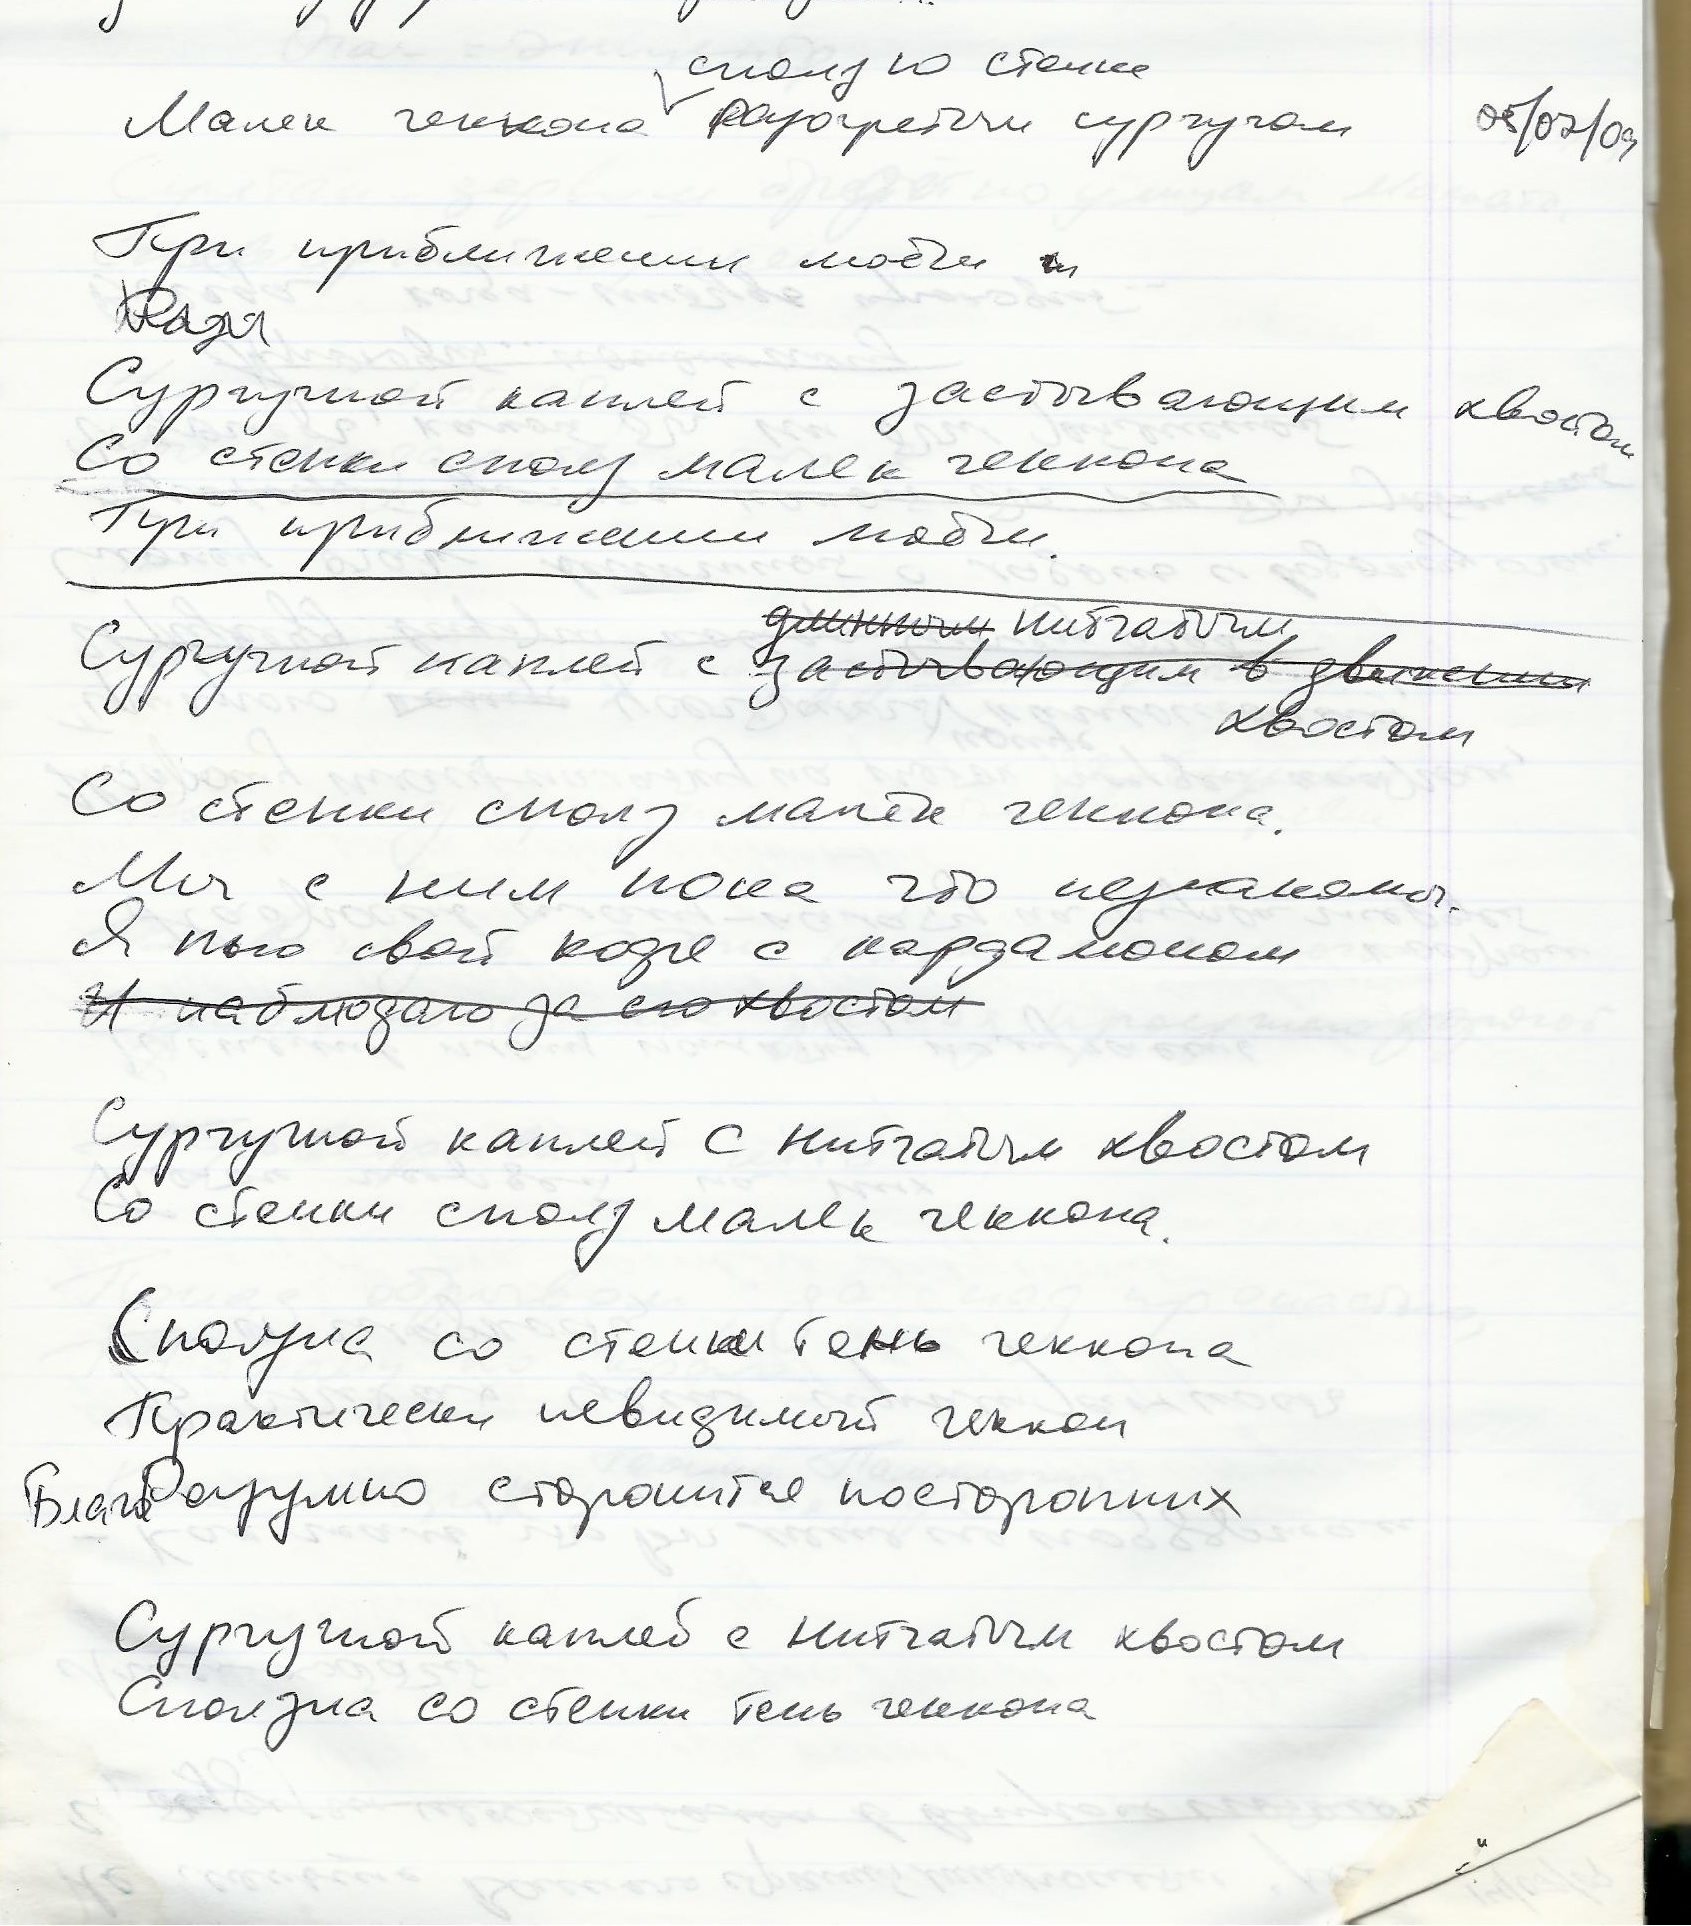 сполз ю стенке
Малек геккона разогретым сургучом 05/07/09
При приближении мобы и
Сургучной каплей с застывающим хвостом
Со стенки сполз малек геккона
При приближении
длинным нитчатым
Сургучной каплей с застывающим в движении
хвостом
Со стенки сполз малёк геккона.
Мы с ним пока что незнакомы.
Я пью свой кофе с кардамоном
И наблюдаю за его хвостом
Сургучной каплей с нитчатым хвостом
Со стенки сполз малек геккона.
Сползла со стенки тень геккона
Практически невидимый геккон
Благоразумно сторонится посторонних
Сургучной каплей с нитчатым хвостом
Сползла со стенки тень геккона